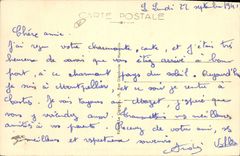 Lundi 22 septembre 1941
CARTE POSTALE
Chère amie.
J'ai reçu votre charmante carte, et j'étais très
heureux de savoir que vous êtes arrivé à bon
port, à ce charmant pays du soleil. Aujourd'hui
je suis à Montpellier et ce soir je rentre à
Je vais toujours au j'espère que
vous y viendrez aussi meilleures
amitiés à vos parents. Recevez de votre ami, ses
meilleurs et respectueux souvenirs
André